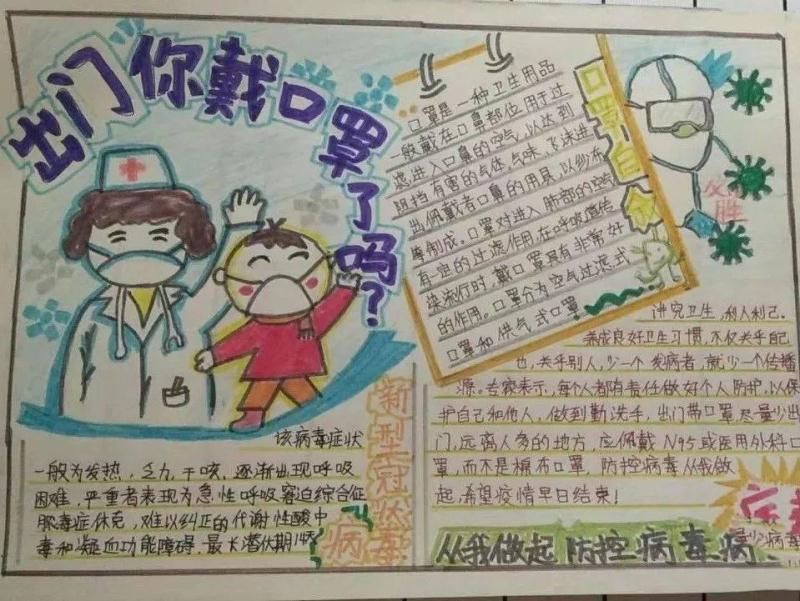 出门你戴口罩了吗?
口罩是一种卫生用品
一般戴在口鼻部位用于过
滤进入口鼻的空气,以达到
阻挡有害的气体,气味,飞沫进
出佩戴者口鼻的用具,以纱布
等制成。口罩对进入肺部的空气
有一定的过滤作用,在呼吸道传
染流行时,戴口罩具有非常好
的作用。口罩分为空气过滤式
口罩和供气式口罩
口罩自
必胜
讲究卫生,利人利己.
养成良好卫生习惯,不仅关乎自己
也,关乎别人,少一个发病者,就少一个传播
源。专家表示,每个人都有责任做好个人防护,以保
护自己和他人,做到勤洗手,出门带口罩,尽量少出
门,远离人多的地方,应佩戴N95或医用外科口
罩,而不是棉布口罩,防控病毒从我做
起,希望疫情早日结束!
该病毒症状
一般为发热,乏力,干咳,逐渐出现呼吸
困难,严重者表现为急性呼吸窘迫综合征
脓毒症休克,难以纠正的代谢性酸中
毒和凝血功能障碍.最长潜伏期14天
新型冠状毒
病
从我做起 防控病毒病